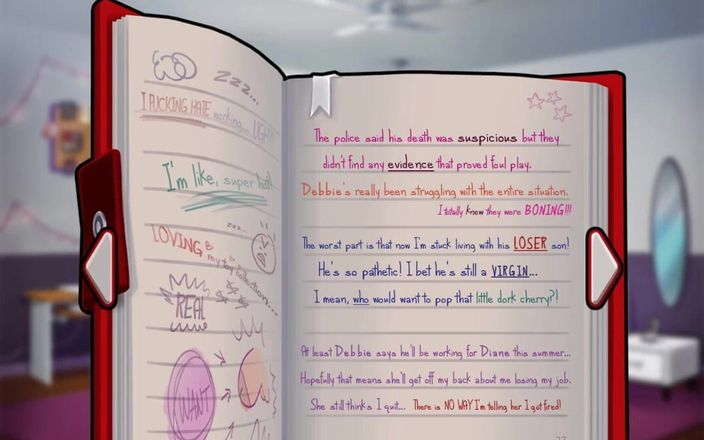 ZZZ...
I FUCKING HATE working... UGH!!
I'm like, super hot!
zzz...
LOVING my toy collection...
REAL
$ $ $
WANT
The police said his death was suspicious but they
didn't find any evidence that proved foul play.
Debbie's really been struggling with the entire situation.
I totally know they were BONING!!!
The worst part is that now I'm stuck living with his LOSER son!
He's so pathetic! I bet he's still a VIRGIN...
I mean, who would want to pop that little dork cherry?!
At least Debbie says he'll be working for Diane this summer...
Hopefully that means she'll get off my back about me losing my job.
She still thinks I quit... There is NO WAY I'm telling her I got fired!